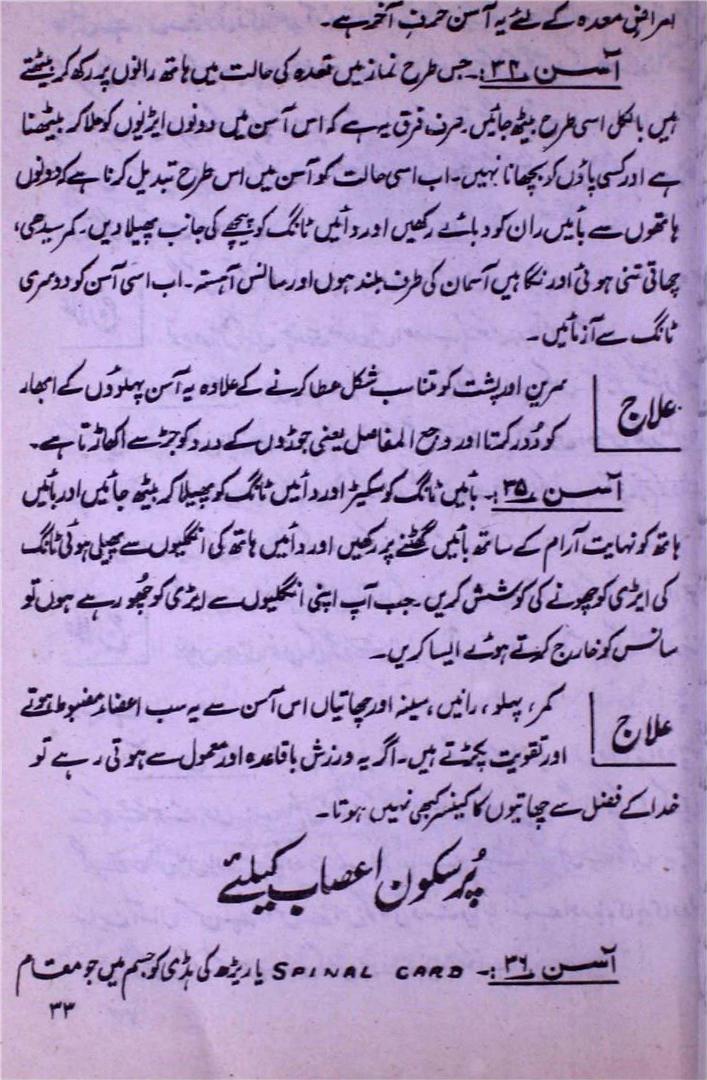 امراضِ معدہ کے لئے یہ آسن حرفِ آخر ہے۔
آسن ۳۴:۔ جس طرح نماز میں قعدہ کی حالت میں ہاتھ رانوں پر رکھ کر بیٹھتے
ہیں بالکل اسی طرح بیٹھ جائیں۔ صرف فرق یہ ہے کہ اس آسن میں دونوں ایڑیوں کو ملا کر بیٹھنا
ہے اور کسی پاؤں کو بچھانا نہیں۔ اب اسی حالت کو آسن میں اس طرح تبدیل کرنا ہے کہ دونوں
ہاتھوں سے بائیں ران کو دبائے رکھیں اور دائیں ٹانگ کو پیچھے کی جانب پھیلا دیں۔ کمر سیدھی،
چھاتی تنی ہوئی اور نگاہیں آسمان کی طرف بلند ہوں اور سانس آہستہ۔ اب اسی آسن کو دوسری
ٹانگ سے آزمائیں۔
علاج
سرین اور پشت کو متناسب شکل عطا کرنے کے علاوہ یہ آسن پہلوؤں کے ابھار
کو دُور کرتا اور وجع المفاصل یعنی جوڑوں کے درد کو جڑ سے اکھاڑتا ہے۔
آسن ۳۵:۔ بائیں ٹانگ کو سکیڑ اور دائیں ٹانگ کو پھیلا کر بیٹھ جائیں اور بائیں
ہاتھ کو نہایت آرام کے ساتھ بائیں گھٹنے پر رکھیں اور دائیں ہاتھ کی انگلیوں سے پھیلی ہوئی ٹانگ
کی ایڑی کو چھونے کی کوشش کریں۔ جب آپ اپنی انگلیوں سے ایڑی کو چھو رہے ہوں تو
سانس کو خارج کرتے ہوئے ایسا کریں۔
علاج
کمر، پہلو، رانیں، سینہ اور چھاتیاں اس آسن سے یہ سب اعضاء مضبوط ہوتے
اور تقویت پکڑتے ہیں۔ اگر یہ ورزش باقاعدہ اور معمول سے ہوتی رہے تو
خدا کے فضل سے چھاتیوں کا کینسر کبھی نہیں ہوتا۔
پُرسکون اعصاب کیلئے
آسن ۳۶:۔ SPINAL CARD یا ریڑھ کی ہڈی کو جسم میں جو مقام
۳۳